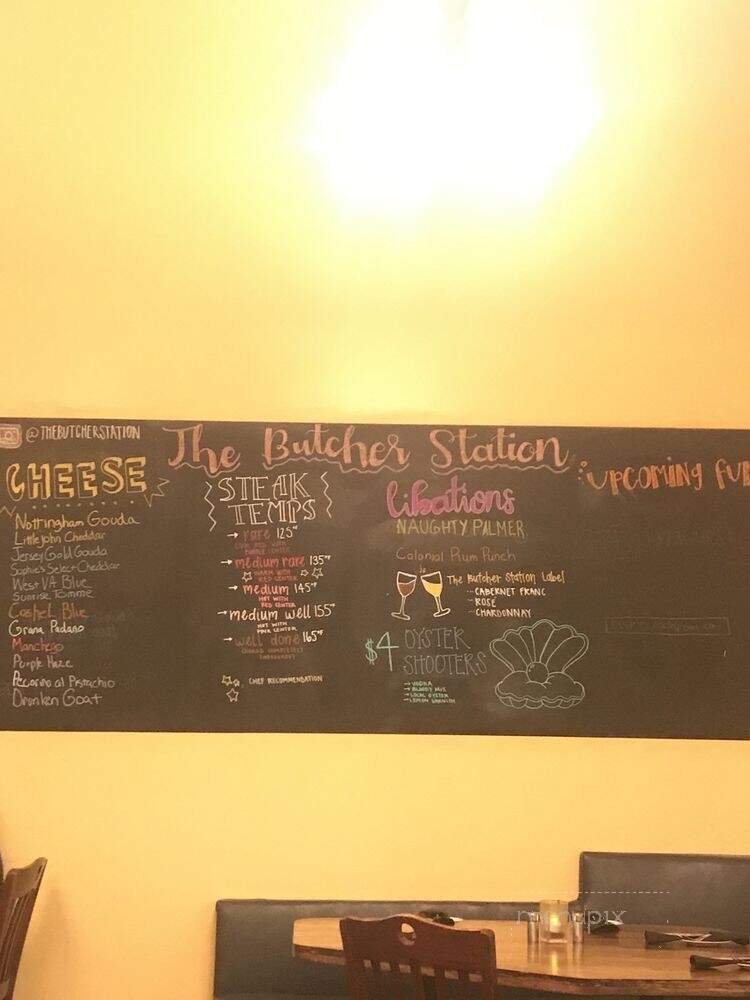 @THEBUTCHERSTATION
The Butcher Station
CHEESE
Nottingham Gouda
Littlejohn Cheddar
Jersey Gold Gouda
Sophie's Select Cheddar
West VA Blue
Sunrise Tomme
Cashel Blue
Grana Padano
Manchego
Purple Haze
Pecorino al Pistachio
Drunken Goat
STEAK
TEMPS
→ rare 125°
COOL RED WITH
PURPLE CENTER
→ medium rare 135°
WARM WITH
RED CENTER
→ medium 145°
HOT WITH
RED CENTER
→ medium well 155°
HOT WITH
PINK CENTER
→ well done 165°
COOKED COMPLETELY
THROUGHOUT
CHEF RECOMMENDATION
libations
NAUGHTY PALMER
Colonial Rum Punch
The Butcher Station Label
- CABERNET FRANC
- ROSÉ
- CHARDONNAY
$4 OYSTER
SHOOTERS
→ VODKA
→ BLOODY MIX
→ LOCAL OYSTER
→ LEMON GARNISH
UPCOMING FUN
menupix